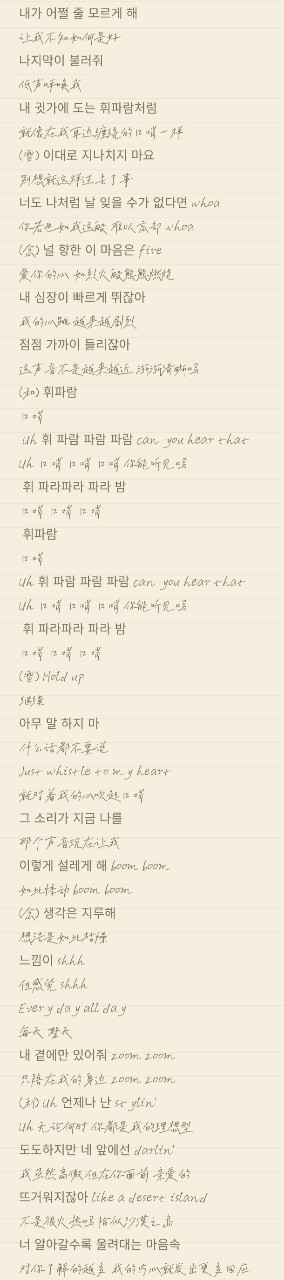 내가 어쩔 줄 모르게 해
让我不知如何是好
나지막이 불러줘
低声呼唤我
내 귓가에 도는 휘파람처럼
就像在我耳边缠绕的口哨一样
(雪) 이대로 지나치지 마요
别想就这样过去了事
너도 나처럼 날 잊을 수가 없다면 whoa
你若也如我这般 难以忘却 whoa
(念) 널 향한 이 마음은 fire
爱你的心 如烈火般熊熊燃烧
내 심장이 빠르게 뛰잖아
我的心跳 越来越剧烈
점점 가까이 들리잖아
这声音不是越来越近 渐渐清晰吗
(和) 휘파람
口哨
Uh 휘 파람 파람 파람 can you hear that
Uh 口哨 口哨 口哨 你能听见吗
휘 파라파라 파라 밤
口哨 口哨 口哨
휘파람
口哨
Uh 휘 파람 파람 파람 can you hear that
Uh 口哨 口哨 口哨 你能听见吗
휘 파라파라 파라 밤
口哨 口哨 口哨
(雪) Hold up
继续
아무 말 하지 마
什么话都不要说
Just whistle to my heart
就对着我的心吹起口哨
그 소리가 지금 나를
那个声音现在让我
이렇게 설레게 해 boom boom
如此悸动 boom boom
(念) 생각은 지루해
想法是如此枯燥
느낌이 shhh
但感觉 shhh
Every day all day
每天 整天
내 곁에만 있어줘 zoom zoom
只陪在我的身边 zoom zoom
(利) Uh 언제나 난 stylin'
Uh 无论何时 你都是我的理想型
도도하지만 네 앞에선 darlin'
我虽然高傲 但在你面前 亲爱的
뜨거워지잖아 like a desert island
不是很火热吗 恰似沙漠之岛
너 알아갈수록 울려대는 마음속
对你了解的越多 我的内心就发出更多回应